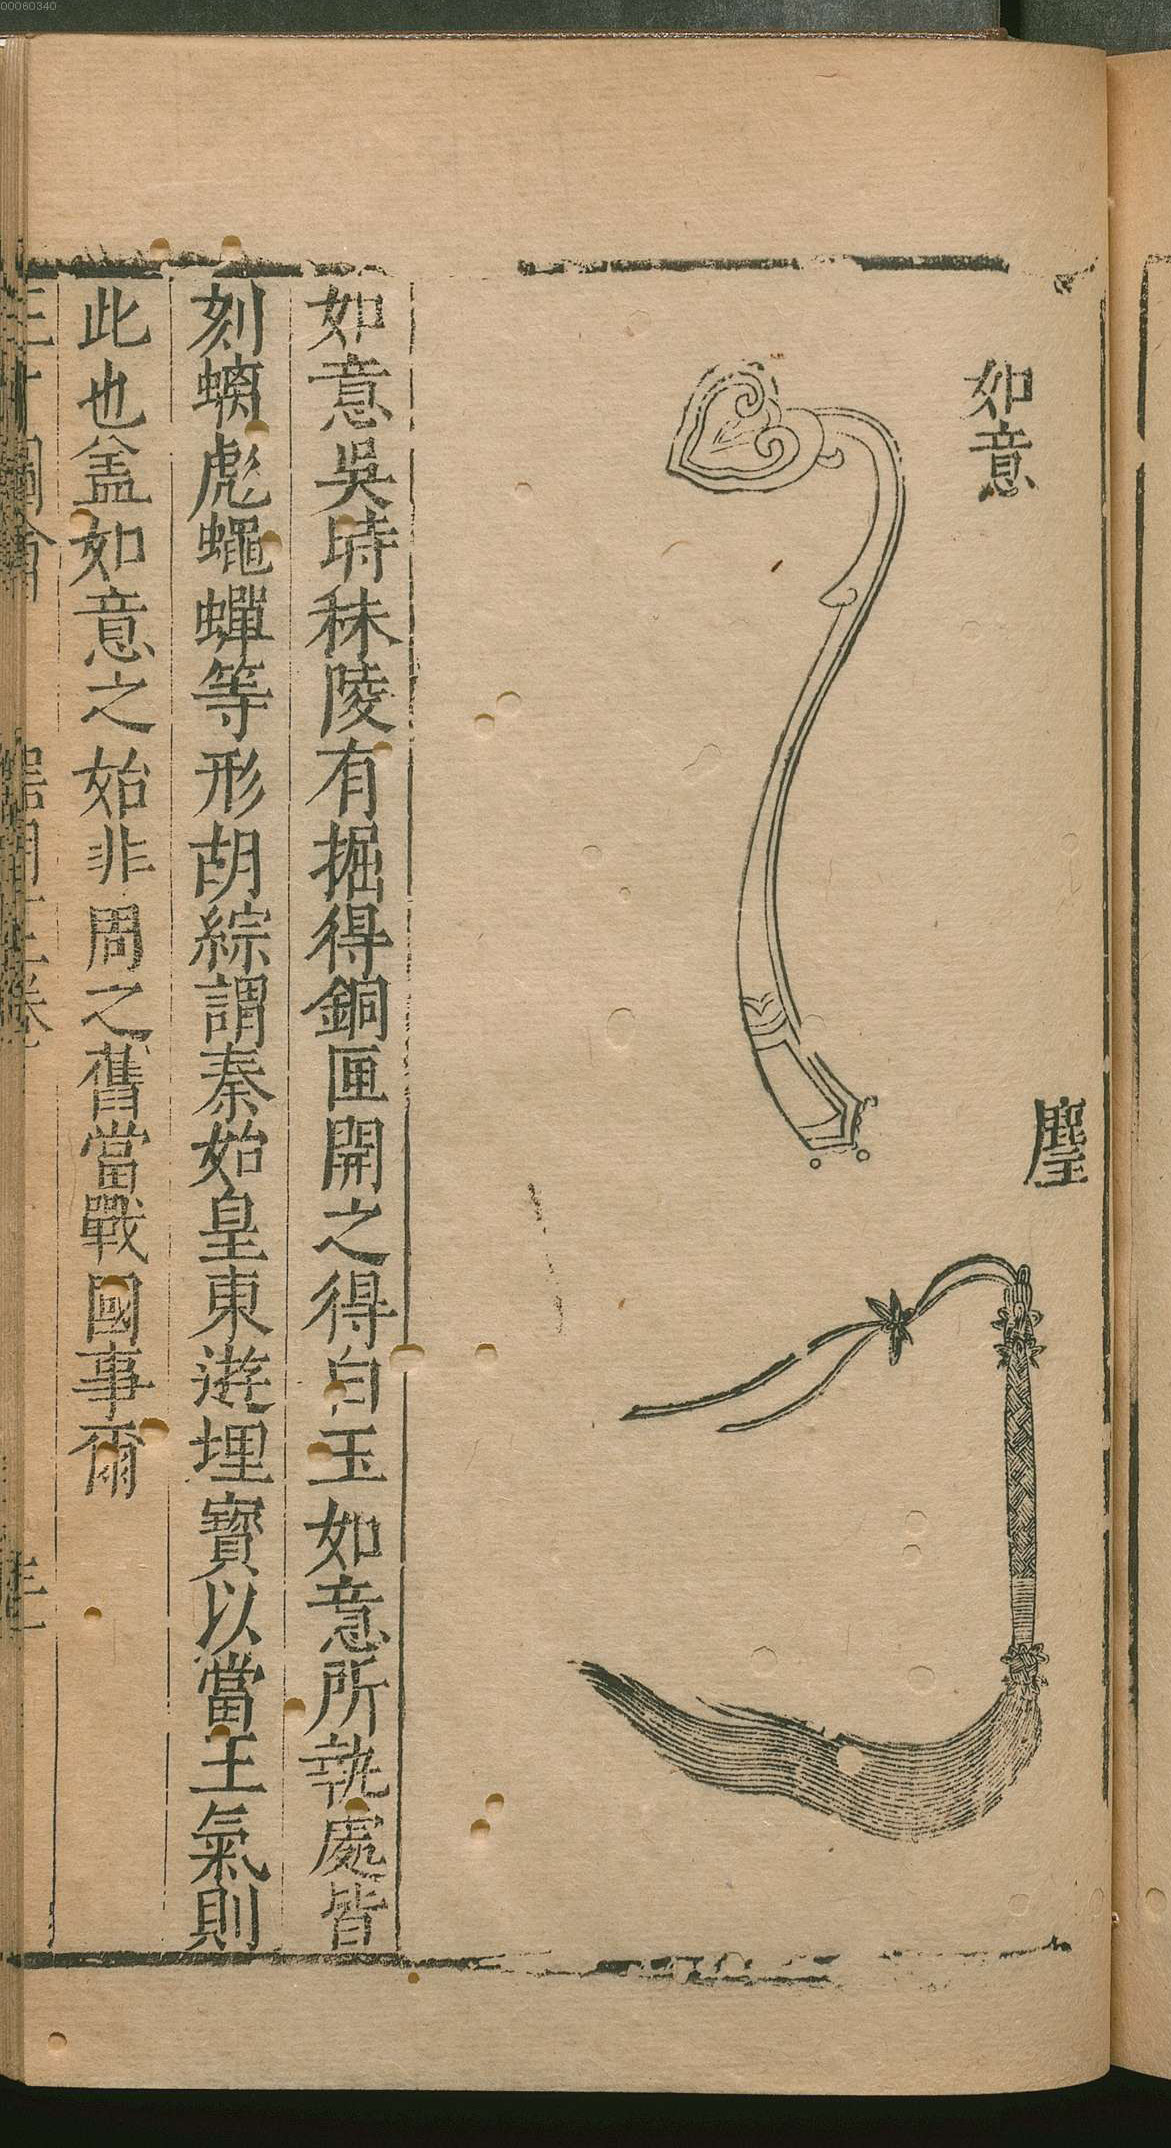 00060340
如意
麈
如意吳時秣陵有掘得銅匣開之得白玉如意所執處皆
刻螭彪蠅蟬等形胡綜謂秦始皇東遊埋寳以當王氣則
此也盖如意之始非周之舊當戰國事爾